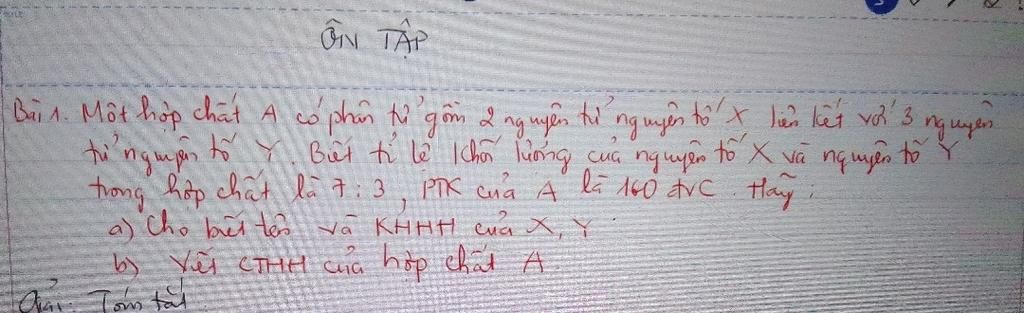 ÔN TẬP
Bài 1. Một hợp chất A có phân tử gồm 2 nguyên tử nguyên tố X liên kết với 3 nguyên
tử nguyên tố Y. Biết tỉ lệ khối lượng của nguyên tố X và nguyên tố Y
trong hợp chất là 7:3, PTK của A là 160 đvC. Hãy:
a) Cho biết tên và KHHH của X, Y.
b) Viết CTHH của hợp chất A.
Giải: Tóm tắt